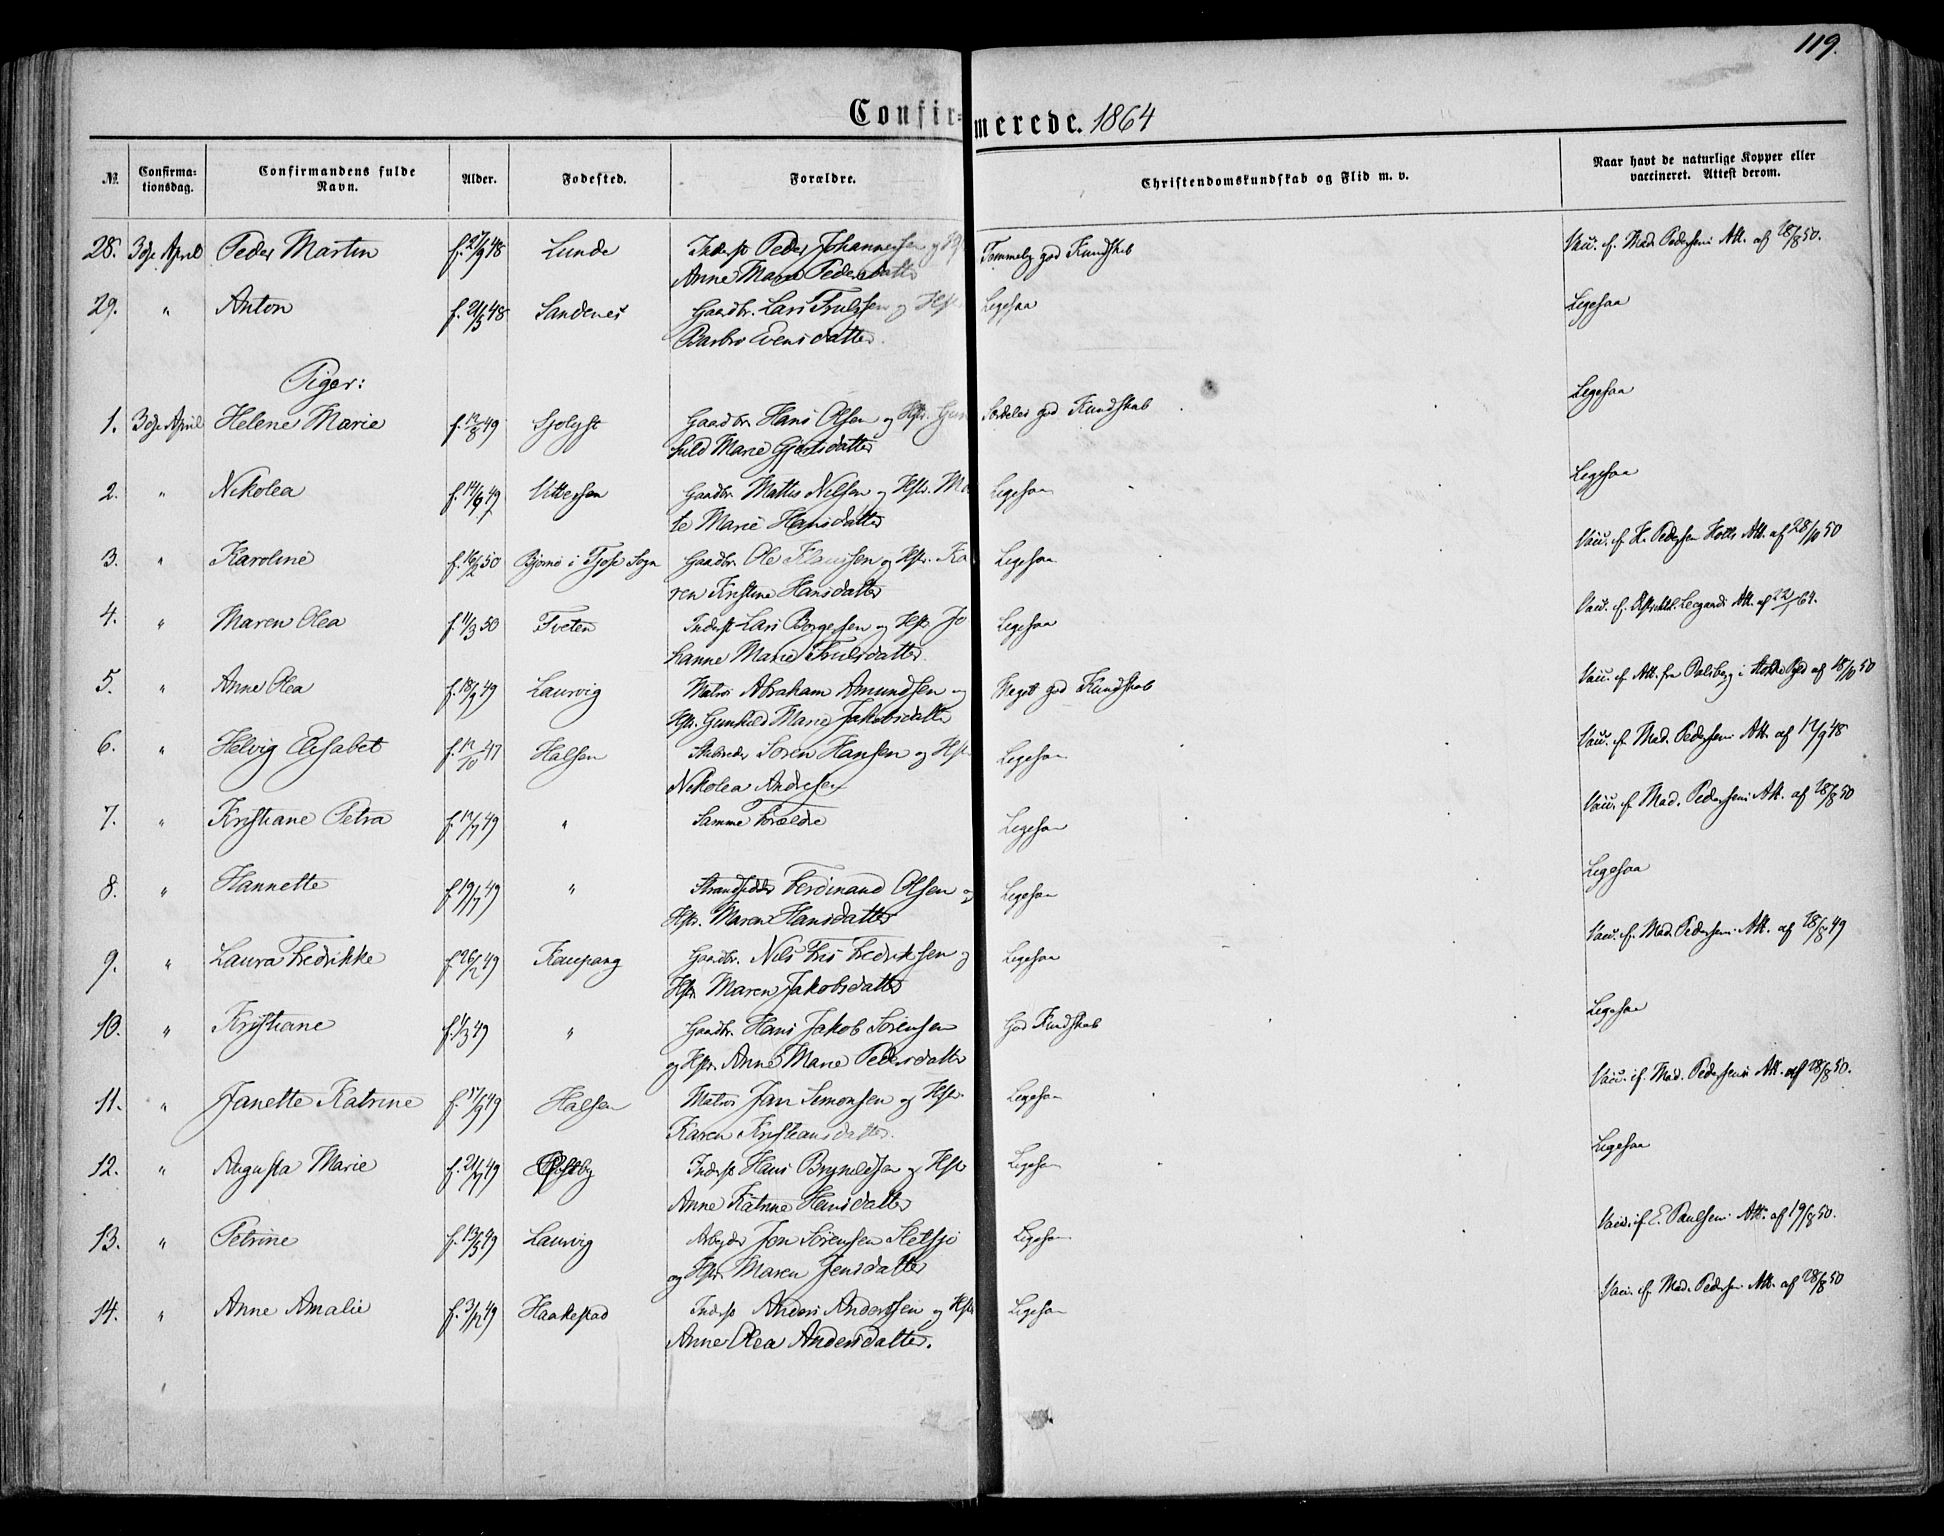 119.
Confir= merede. 1864
№ Confirma=tionsdag. Confirmandens fulde Navn. Alder. Fødested. Forældre. Christendomskundskab og Flid m. v. Naar havt de naturlige Kopper eller vaccineret. Attest derom.
28. 3die April Peder Martin f. 27/9 48 Lunde Inderst Peder Johannessen og Temmelig god Kundskab Vacc. if. Mad. Pedersens Att. af 28/8 50.
Anne Marie Pedersdatter
29. " Anton f. 21/5 48 Sandenes Gaardbr. Lars Trulssen og Hstr Ligesaa Ligesaa
Barbro Evensdatter.
Piger:
1. 3die April Helene Marie f. 12/8 49 Sjolyst Gaardbr. Hans Olsen og Hstr. Gun Særdeles god Kundskab Ligesaa
hild Marie Gjertsdatter
2. " Nikolea f. 14/6 49 Gaardbr. Mattis Nilsen og Hstr. Ma Ligesaa Ligesaa
te Marie Hansdatter
3. " Karoline f. 16/2 50 Bjørnø i Tjøse Sogn Gaardbr. Ole Klausen og Hstr. Ka Ligesaa Vacc. if. H. Pedersen Holts Att. af 28/10 50
ren Kristine Hansdatter
4. " Maren Olea f. 11/3 50 Tveten Inderst Lars Borgersen og Hstr Jo Ligesaa Vacc. if. Att. af 22/1 64.
hanne Marie Trulsdatter.
5. " Anne Olea f. 18/9 49 Laurvig Matros Abraham Amundsen og Meget god Kundskab Vacc. if. Att. fra i Stokke af 18/10 50
Hstr. Gunhild Marie Jakobsdatter
6. " Helvig Elisabet f. 12/10 47 Halsen Søren Hansen og Hstr Ligesaa Vacc. if. Mad. Pedersens Att. af 12/9 48
Nikolea Andresen
7. " Kristiane Petra f. 12/7 49 " Samme Forældre Ligesaa Vacc. if. Mad. Pedersens Att. af 28/8 50
8. " Hannette f. 19/7 49 " Strandsidder Ferdinand Olsen og Ligesaa Ligesaa
Hstr. Maren Hansdatter
9. " Laura Fredrikke f. 26/2 49 Kaupang Gaardbr. Nils Fris Fredriksen og Ligesaa Vacc. if. Mad. Pedersens Att. af 28/8 49
Hstr. Maren Jakobsdatter
10. " Kristiane f. 1/3 49 " Gaardbr. Hans Jakob Sørensen God Kundskab Ligesaa
og Hstr. Anne Marie Pedersdatter
11. " Janette Katrine f. 17/9 49 Halsen Matros Jan Simonsen og Hstr. Ligesaa Vacc. if. Mad. Pedersens Att. af 28/8 50.
Karen Kristiansdatter.
12. " Augusta Marie f. 21/7 49 Østby Inderst Hans Bryneldsen og Hstr Ligesaa Ligesaa
Anne Katrine Hansdatter
13. " Petrine f. 13/5 49 Laurvig Arbejder Jon Sørensen Sletsjø Ligesaa Vacc. if. E. Paulsens Att. af 19/8 50.
og Hstr. Maren Jensdatter
14. " Anne Amalie f. 3/12 49 Haakestad Inderst Anders Anderssen og Hstr Ligesaa Vacc. if. Mad. Pedersens Att. af 28/8 50
Anne Olea Andersdatter.
"